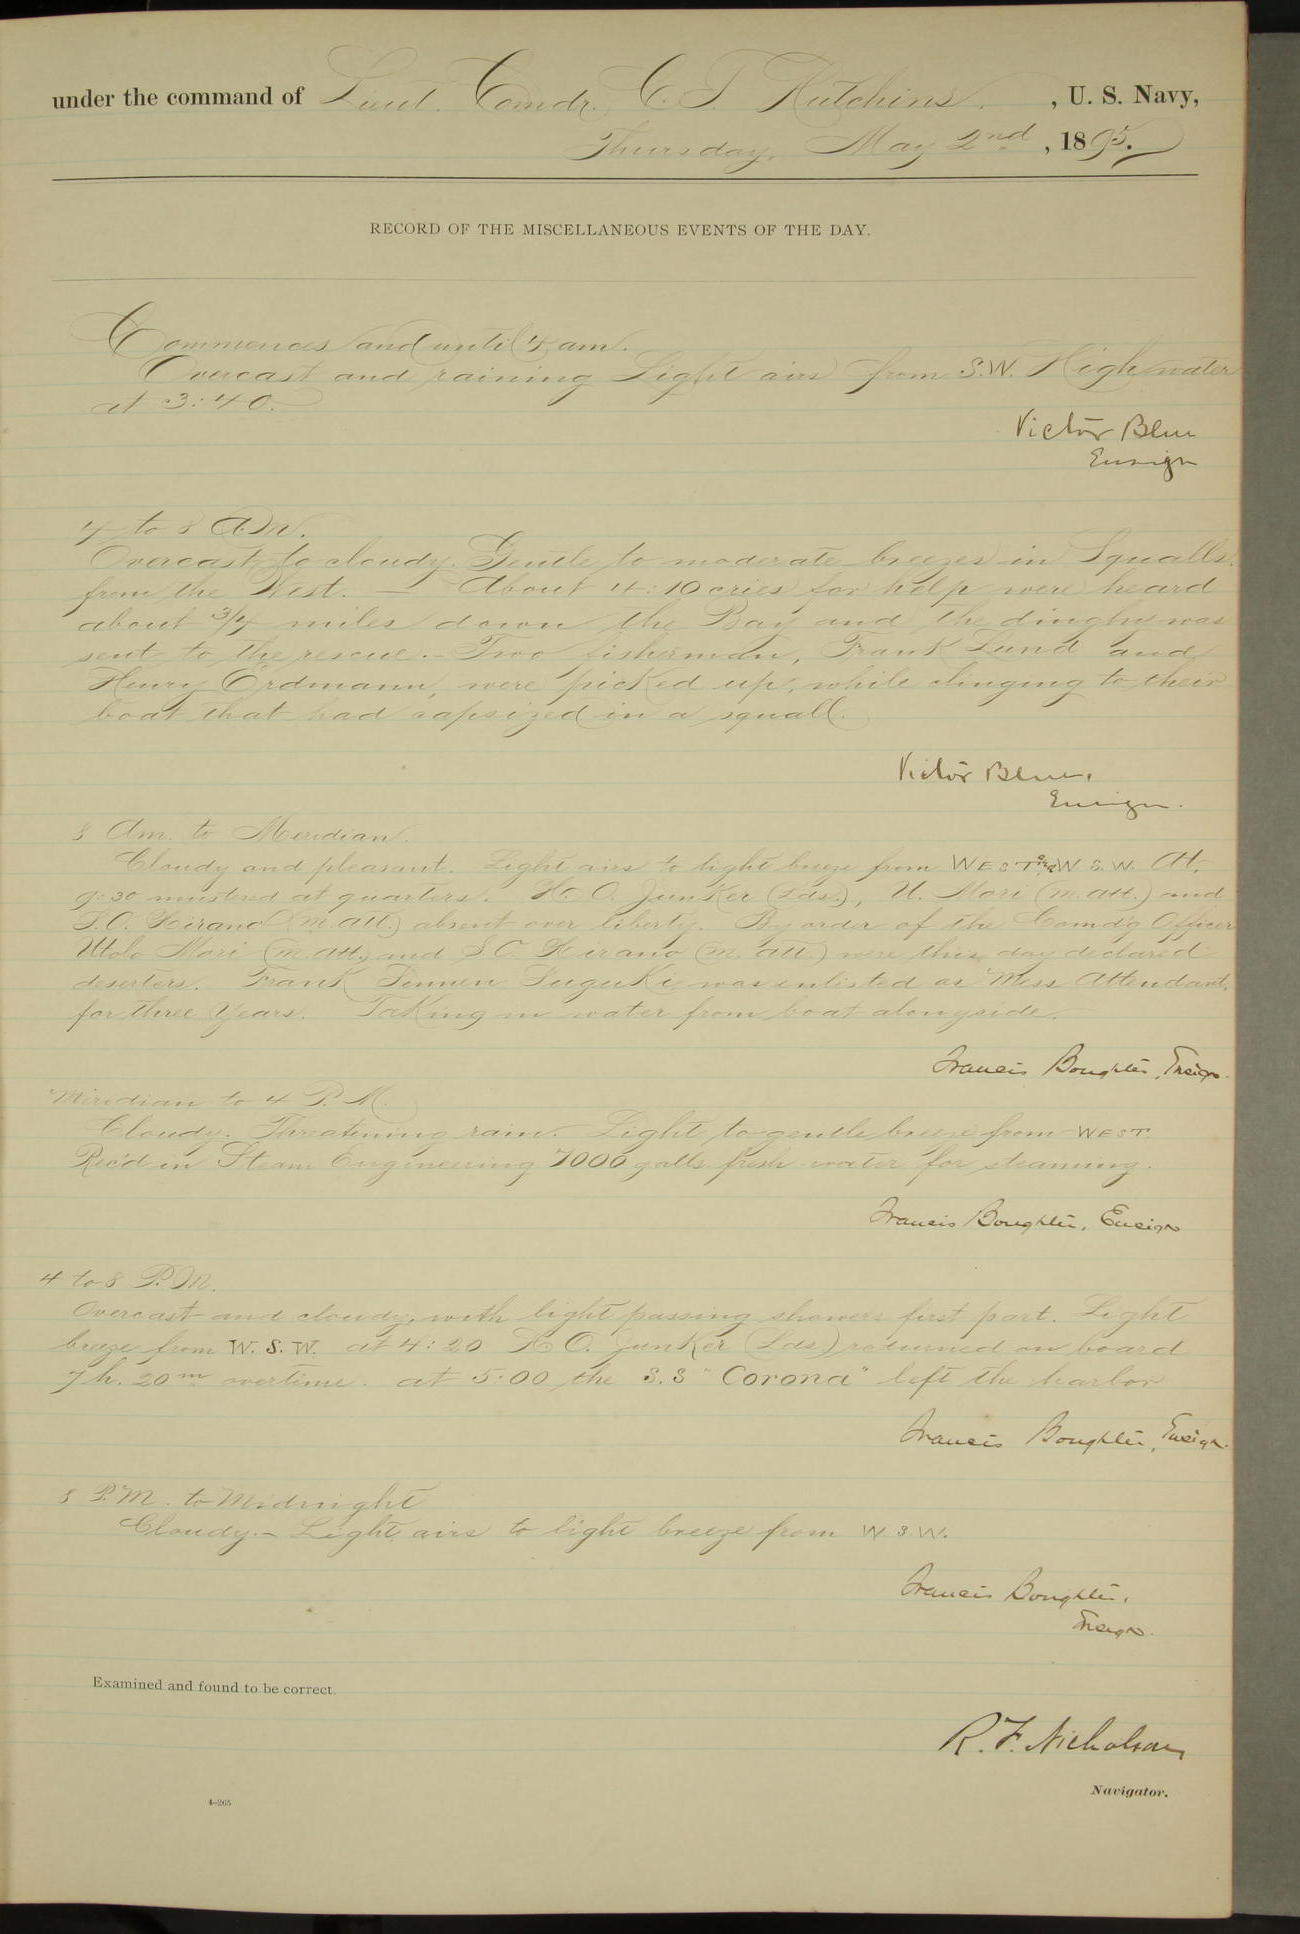 under the command of Lieut. Comdr. C. T. Hutchins. , U. S. Navy,
Thursday, May 2nd , 1895.
RECORD OF THE MISCELLANEOUS EVENTS OF THE DAY.
Commences and until 4 am.
Overcast and raining Light airs from S.W. High water
at 3:40.
Victor Blue
Ensign
4 to 8 A.M.
Overcast to cloudy. Gentle to moderate breezes in Squalls.
from the West. — About 4:10 cries for help were heard
about 3/4 miles down the Bay and the dinghy was
sent to the rescue. – Two fisherman, Frank Lund and
Henry Ordmann, were picked up, while clinging to their
boat that had capsized in a squall.
Victor Blue,
Ensign.
8 Am. to Meridian.
Cloudy and pleasant. Light airs to light breeze from WEST and W.S.W. At.
9:30 mustered at quarters. H. O. Junker (Lds.), U. Mori (M. Att.) and
S.O. Hirano (M att.) absent over liberty. By order of the Comd'g Officer
Utolo Mori (M. Att.) and S O. Hirano (M. att.) were this day declared
deserters. Frank Suguki was enlisted as Mess Attendant,
for three Years. Taking in water from boat alongside.
Francis Boughter, Ensign.
Meridian to 4 P.M.
Cloudy. Threatening rain. Light to gentle breeze from WEST.
Rec'd in Steam Engineering 7000 galls. fresh water for steaming.
Francis Boughter, Ensign
4 to 8 P.M.
Overcast and cloudy, with light passing showers first part. Light
breeze from W. S. W. at 4:20 H O. Junker (Lds.) returned on board
7 h. 20 m overtime. at 5:00 the S.S "Corona" left the harbor
Francis Boughter, Ensign.
8 P.M. to Midnight
Cloudy. – Light airs to light breeze from W.S.W.
Francis Boughter,
Ensign.
Examined and found to be correct.
R. F. Nicholson
Navigator.
4–205